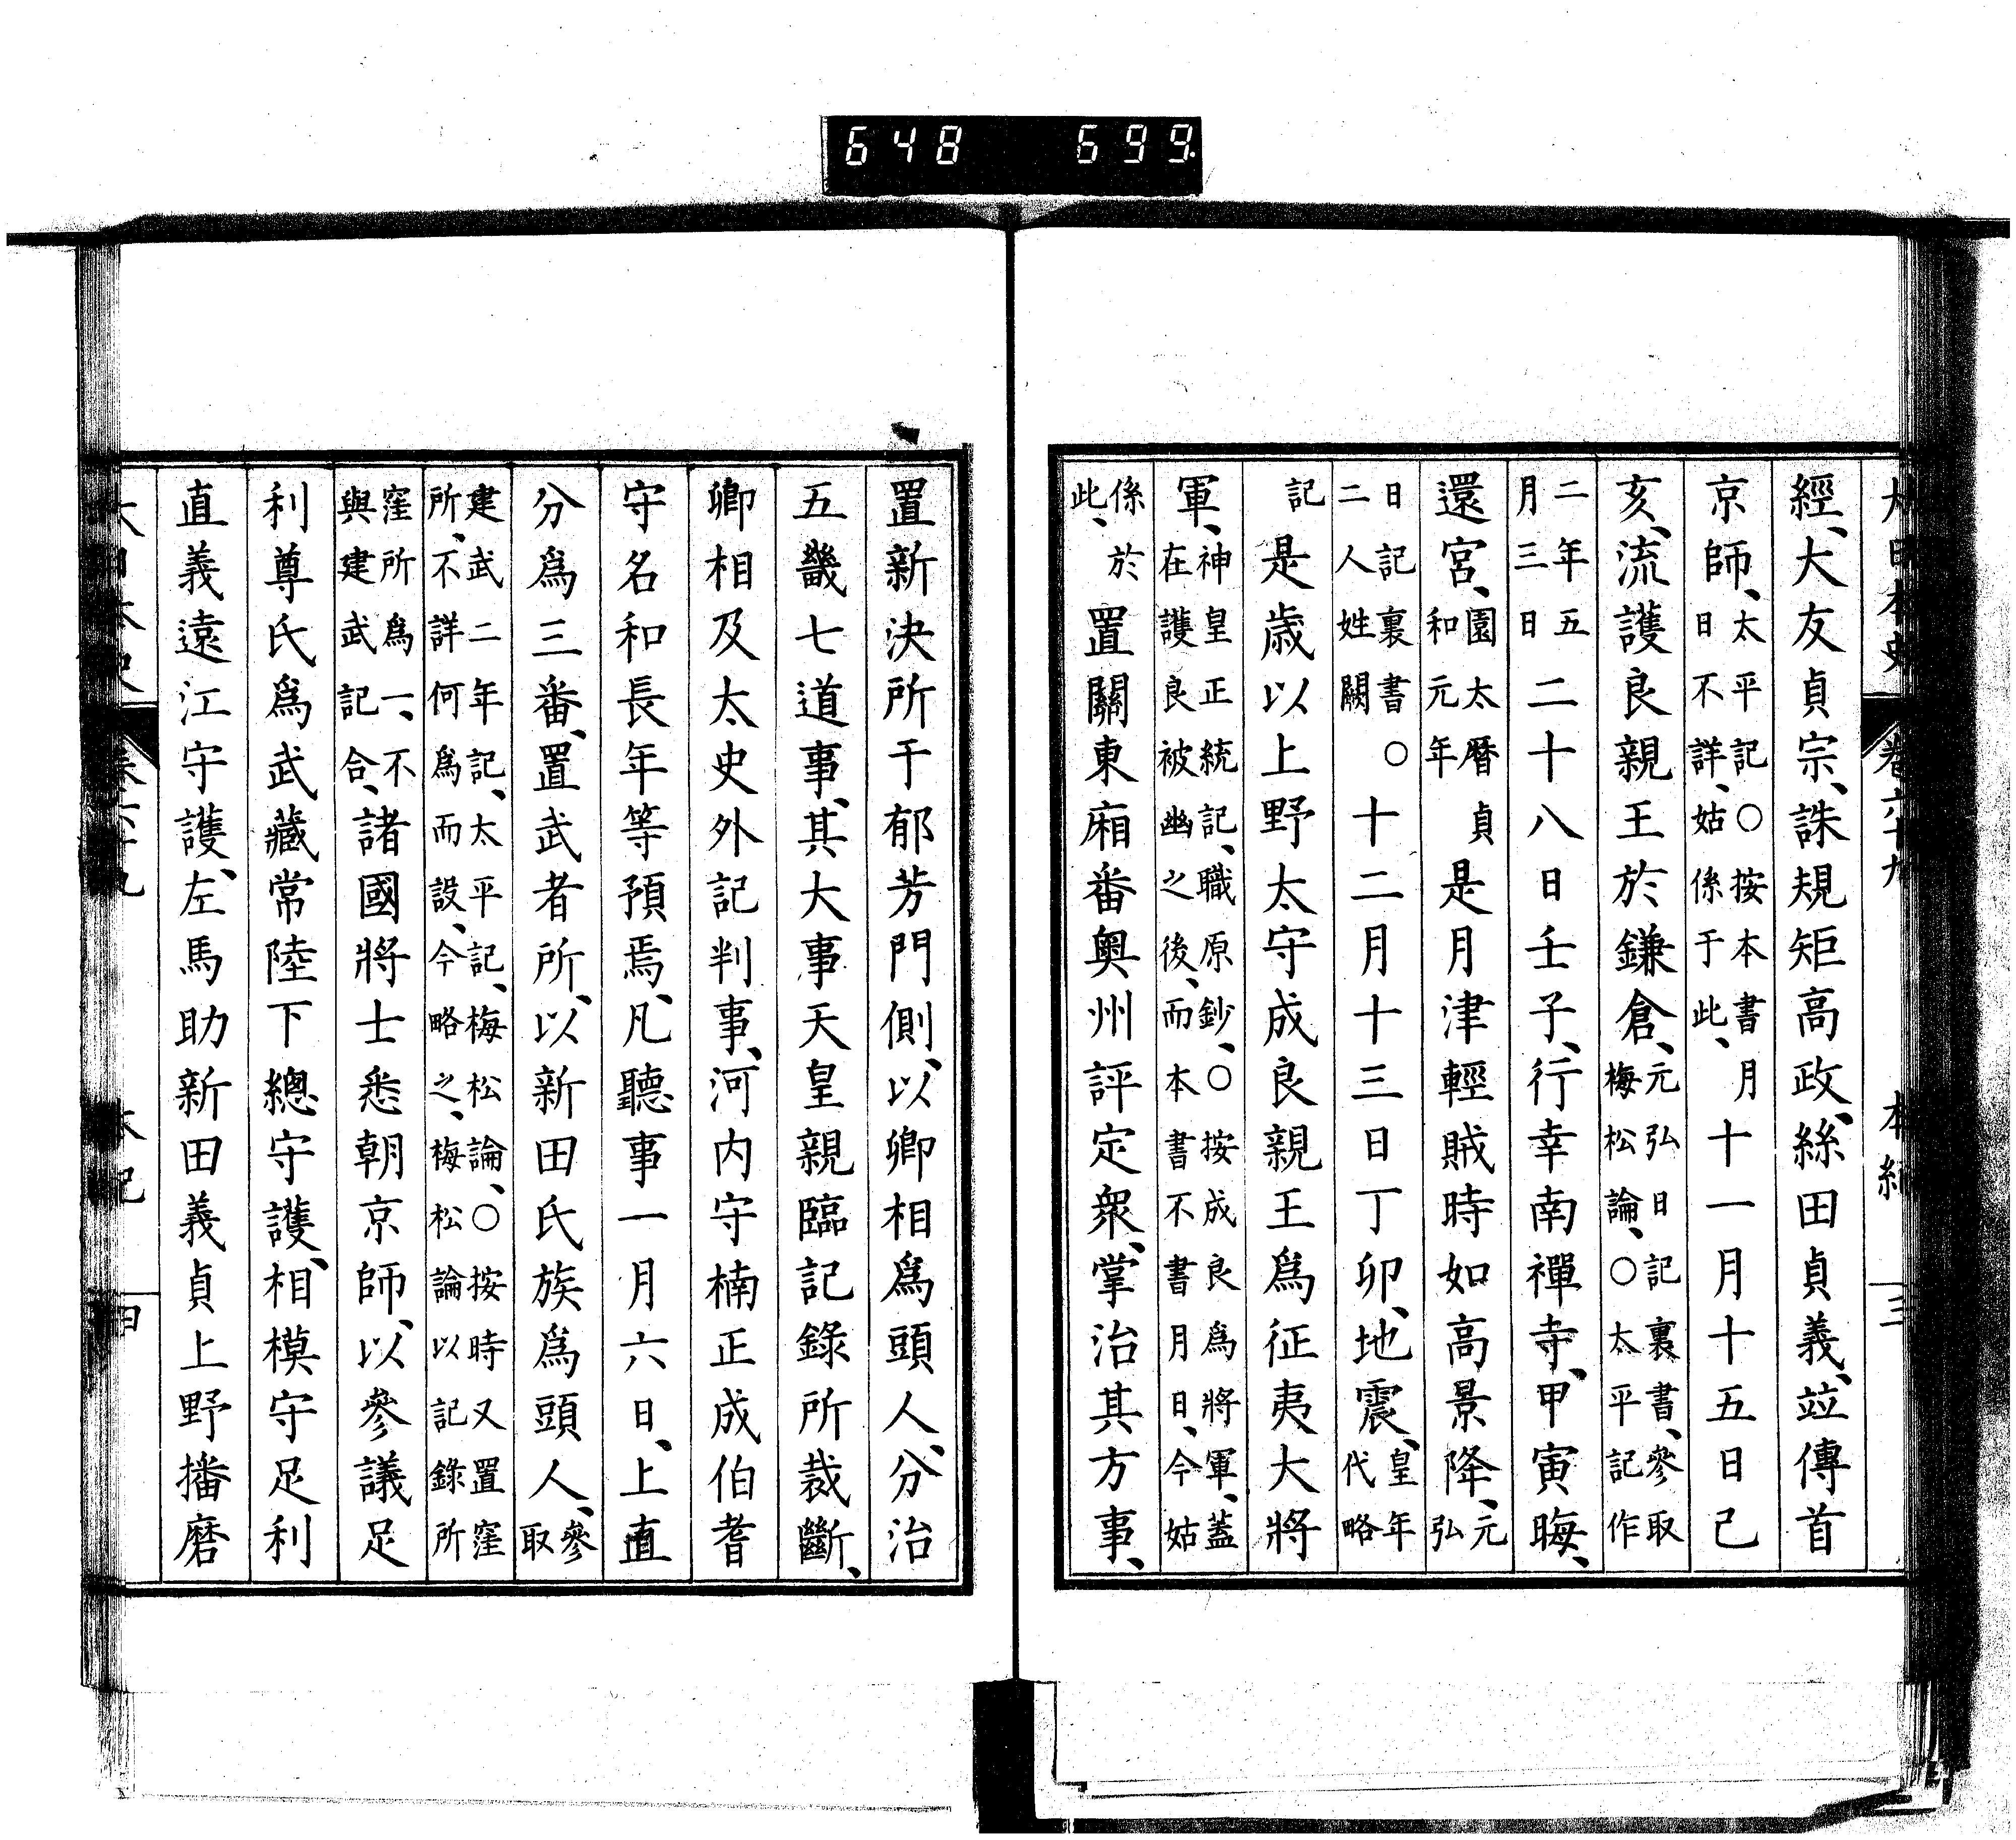 大日本史 卷六十九 本紀 三
經、大友貞宗、誅規矩高政、絲田貞義、竝傳首
京師、太平記○按本書月日不詳、姑係于此、十一月十五日己
亥、流護良親王於鎌倉、元弘日記裏書、參取梅松論、○太平記作
二年五月三日二十八日壬子、行幸南禪寺、甲寅晦、
還宮、園太曆貞和元年是月津輕賊時如高景降、元弘
日記裏書二人姓闕○十二月十三日丁卯、地震、皇年代略
記是歳以上野太守成良親王爲征夷大將
軍、神皇正統記、職原鈔、○按成良爲將軍、蓋在護良被幽之後、而本書不書月日、今姑
係於此、置關東廂番奧州評定衆、掌治其方事、
置新決所于郁芳門側、以卿相爲頭人、分治
五畿七道事、其大事天皇親臨記錄所裁斷、
卿相及太史外記判事、河内守楠正成伯耆
守名和長年等預焉、凡聽事一月六日、上直
分爲三番、置武者所、以新田氏族爲頭人、參取
建武二年記、太平記、梅松論、○按時又置窪所、不詳何爲而設、今略之、梅松論以記錄所
窪所爲一、不與建武記合、諸國將士悉朝京師、以參議足
利尊氏爲武藏常陸下總守護、相模守足利
直義遠江守護、左馬助新田義貞上野播磨
大日本史 卷六十九 本紀 四
648 699.